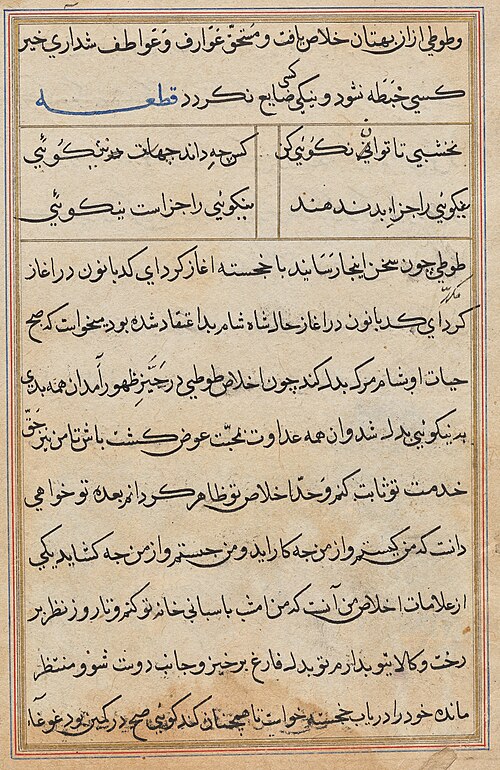 و طوطی از ان بهتان خلاص یافت و مستحق عوارف و عواطف شد اری خیر
کسی خبطه نشود و نیکی کسی ضایع نکردد قطعه
نخشبی تا توانی نکوئی کن کرچه داند جهان نیکوئی
نیکوئی را جزا بدند هند نیکوئی را جزاست نیکوئی
طوطی چون سخن اینجا رسانید با خجسته اغاز کرد ای کدبانو ن در اغاز
کرد ای کدبانو ن در اغاز حال شاه شام بد اعتقاد شده بود میخواست که صبح
حیات او بشام مرک بدل کند چون اخلاص طوطی در حیز ظهور آمد ان همه بدی
به نیکوئی بدل شد و ان همه عداوت بمحبت عوض کشت باش تا من نیز حق
خدمت تو ثابت کنم و حد اخلاص تو ظاهر کردانم بعده تو خواهی
دانست که من کیستم و از من چه کار اید و من چیستم و از من چه کشاید یکی
از علامات اخلاص من آنست که من امشب پاسبانی خانه تو کنم و تا روز نظر بر
رخت و کالا تو بدارم تو بدل فارغ برخیز و جانب دوست شو و منتظر
مانده خود را دریاب خجسته خواست تا همچنان کند کوئی صبح در کمین بود غوغا